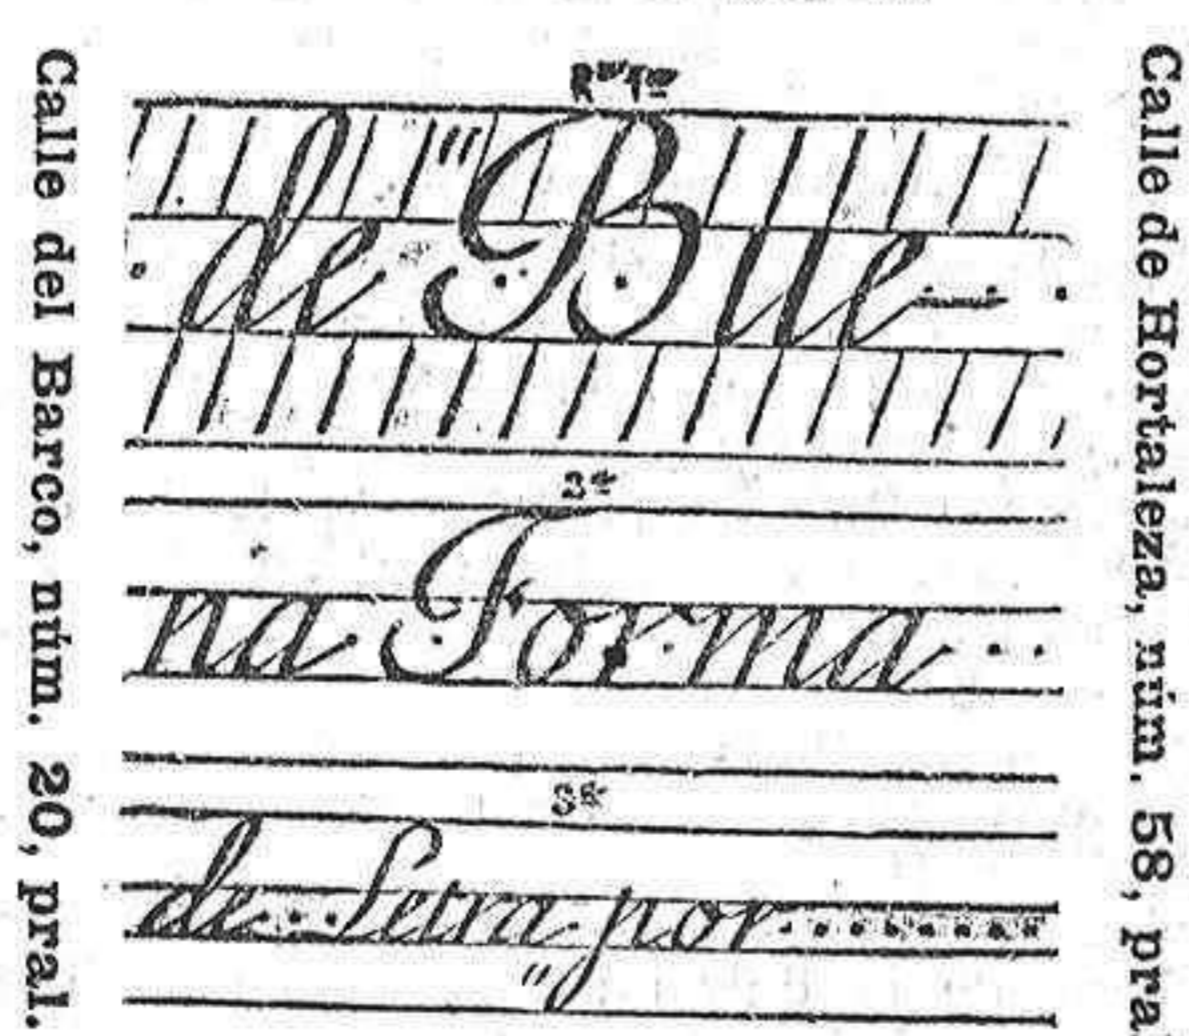 Calle del Barco, núm. 20, pral.
Rª 1ª
de Bue-
2ª
na Forma
3ª
de Letra por
Calle de Hortaleza, núm. 58, pra